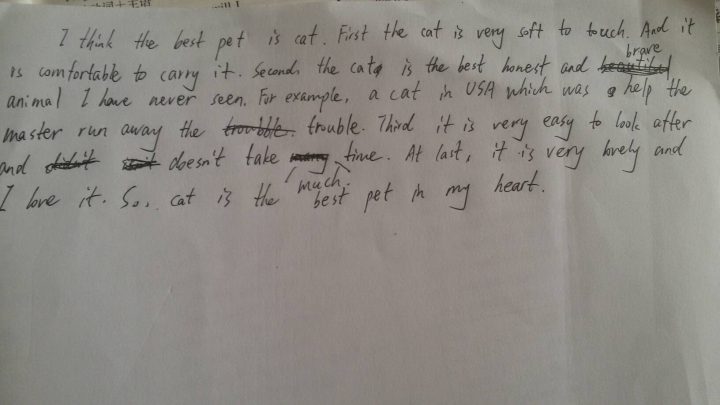 I think the best pet is cat. First the cat is very soft to touch. And it
is comfortable to carry it. Second, the cat is the best honest and brave
animal I have never seen. For example, a cat in USA which was help the
master run away the trouble. Third it is very easy to look after
and doesn't take much time. At last, it is very lovely and
I love it. So, cat is the best pet in my heart.